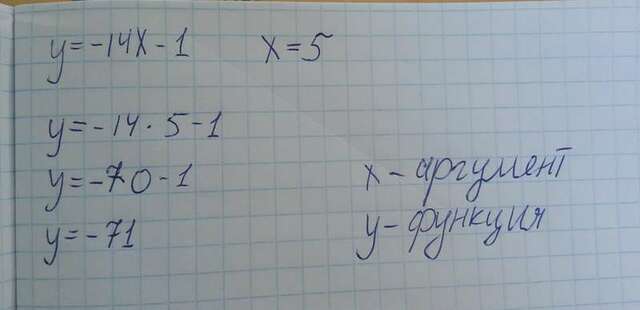 y = -14x - 1    x = 5
y = -14 · 5 - 1
y = -70 - 1
x - аргумент
y = -71
y - функция